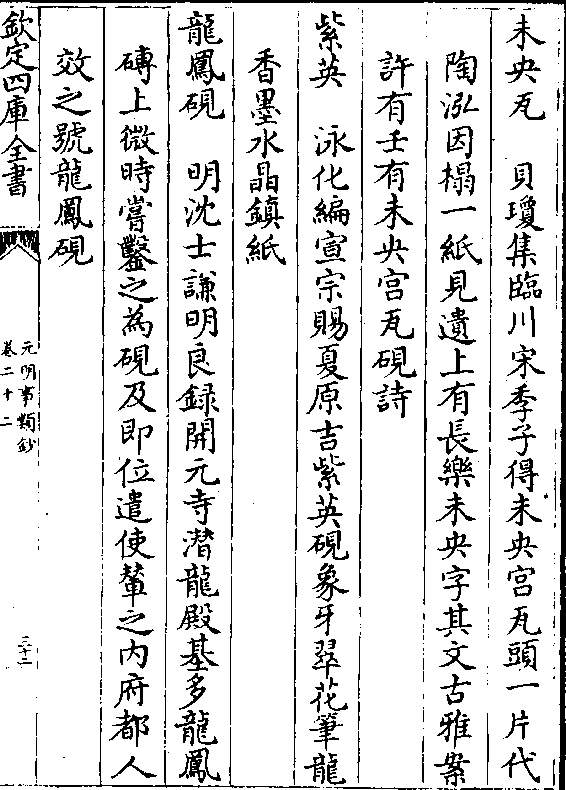 未央瓦　貝瓊集臨川宋季子得未央宮瓦頭一片代
陶泓因榻一紙見遺上有長樂未央字其文古雅案
許有壬有未央宫瓦硯詩
紫英　泳化編宣宗賜夏原吉紫英硯象牙翠花筆龍
香墨水晶鎮紙
龍鳳硯　明沈士謙明良録開元寺潜龍殿基多龍鳳
磚上微時嘗鑿之為硯及即位遣使輦之内府都人
效之號龍鳳硯
欽定四庫全書
元明事類鈔
卷二十二
三十二